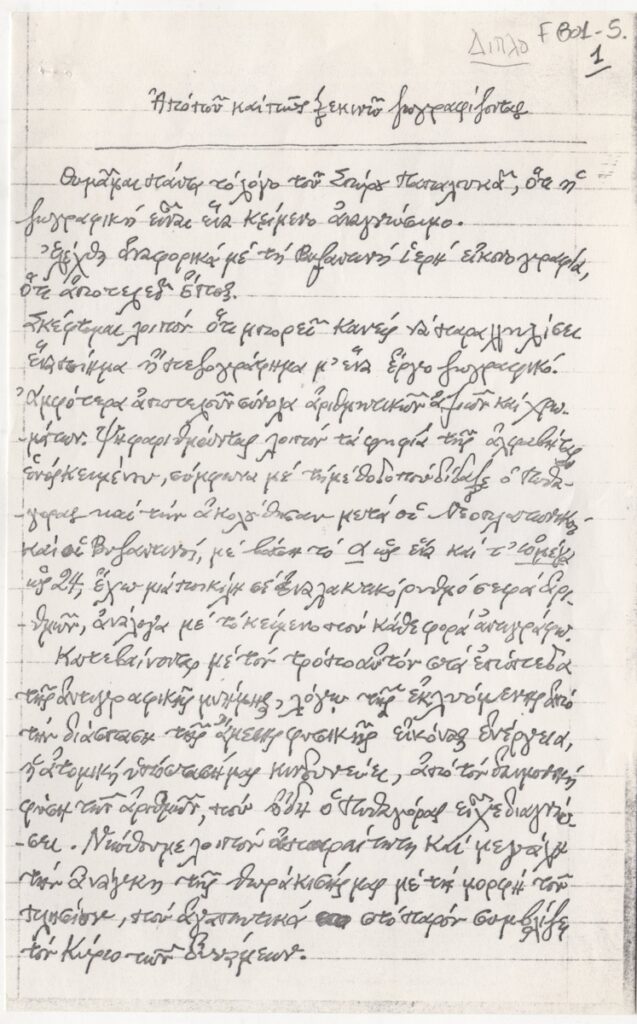 Διπλο F801-5.
1
Ἀπό ποῦ καί πῶς ξεκινῶ ζωγραφίζοντας
Θυμᾶμαι πάντα τό λόγο τοῦ Σπύρου Παπαλουκᾶ, ὅτι ἡ
ζωγραφική εἶναι ἕνα κείμενο ἀναγνώσιμο.
Ἐλέχθη ἀναφορικά μέ τή Βυζαντινή ἱερή εἰκονογραφία,
ὅτι ἀποτελεῖ ἔπος.
Σκέφτομαι λοιπόν ὅτι μπορεῖ κανείς νά παραλληλίσει
ἕνα ποίημα ἤ πεζογράφημα μ' ἕνα ἔργο ζωγραφικό.
Ἀμφότερα ἀποτελοῦν σύνολα ἀριθμητικῶν ἀξιῶν καί χρω-
-μάτων. Ψηφαριθμώντας λοιπόν τά ψηφία τῆς ἀλφαβήτας
ἑνός κειμένου, σύμφωνα μέ τή μέθοδο πού δίδαξε ὁ Πυθα-
γόρας καί τήν ἀκολούθησαν μετά οἱ Νεοπλατωνικοί
καί οἱ Βυζαντινοί, μέ βάση τό α ὡς ἕνα καί τ' ὠμέγα
ὡς 24, ἔχω μιά ποικίλη σέ ἐναλλακτικό ρυθμό σειρά ἀρι-
-θμῶν, ἀνάλογα μέ τό κείμενο πού κάθε φορά ἀντιγράφω.
Κατεβαίνοντας μέ τόν τρόπο αὐτόν στά ἐπίπεδα
τῆς ἀντιγραφικῆς μνήμης, λόγω τῆς ἐκλυόμενης ἀπό
τήν διάσπαση τῆς ἄμεσης φυσικῆς εἰκόνας ἐνέργεια,
ἡ ἀτομική ὑπόστασή μας κινδυνεύει, ἀπό τήν δαιμονική
φύση τῶν ἀριθμῶν, πού ἤδη ὁ Πυθαγόρας εἶχε διαγνώ-
-σει. Νιώθουμε λοιπόν ἀπαραίτητη καί μεγάλη
τήν ἀνάγκη τῆς θωράκισής μας μέ τή μορφή τοῦ
πλησίον, πού ἀγαπητικά στό παρόν συμβαδίζει
τόν Κύριο τῶν Δυνάμεων.